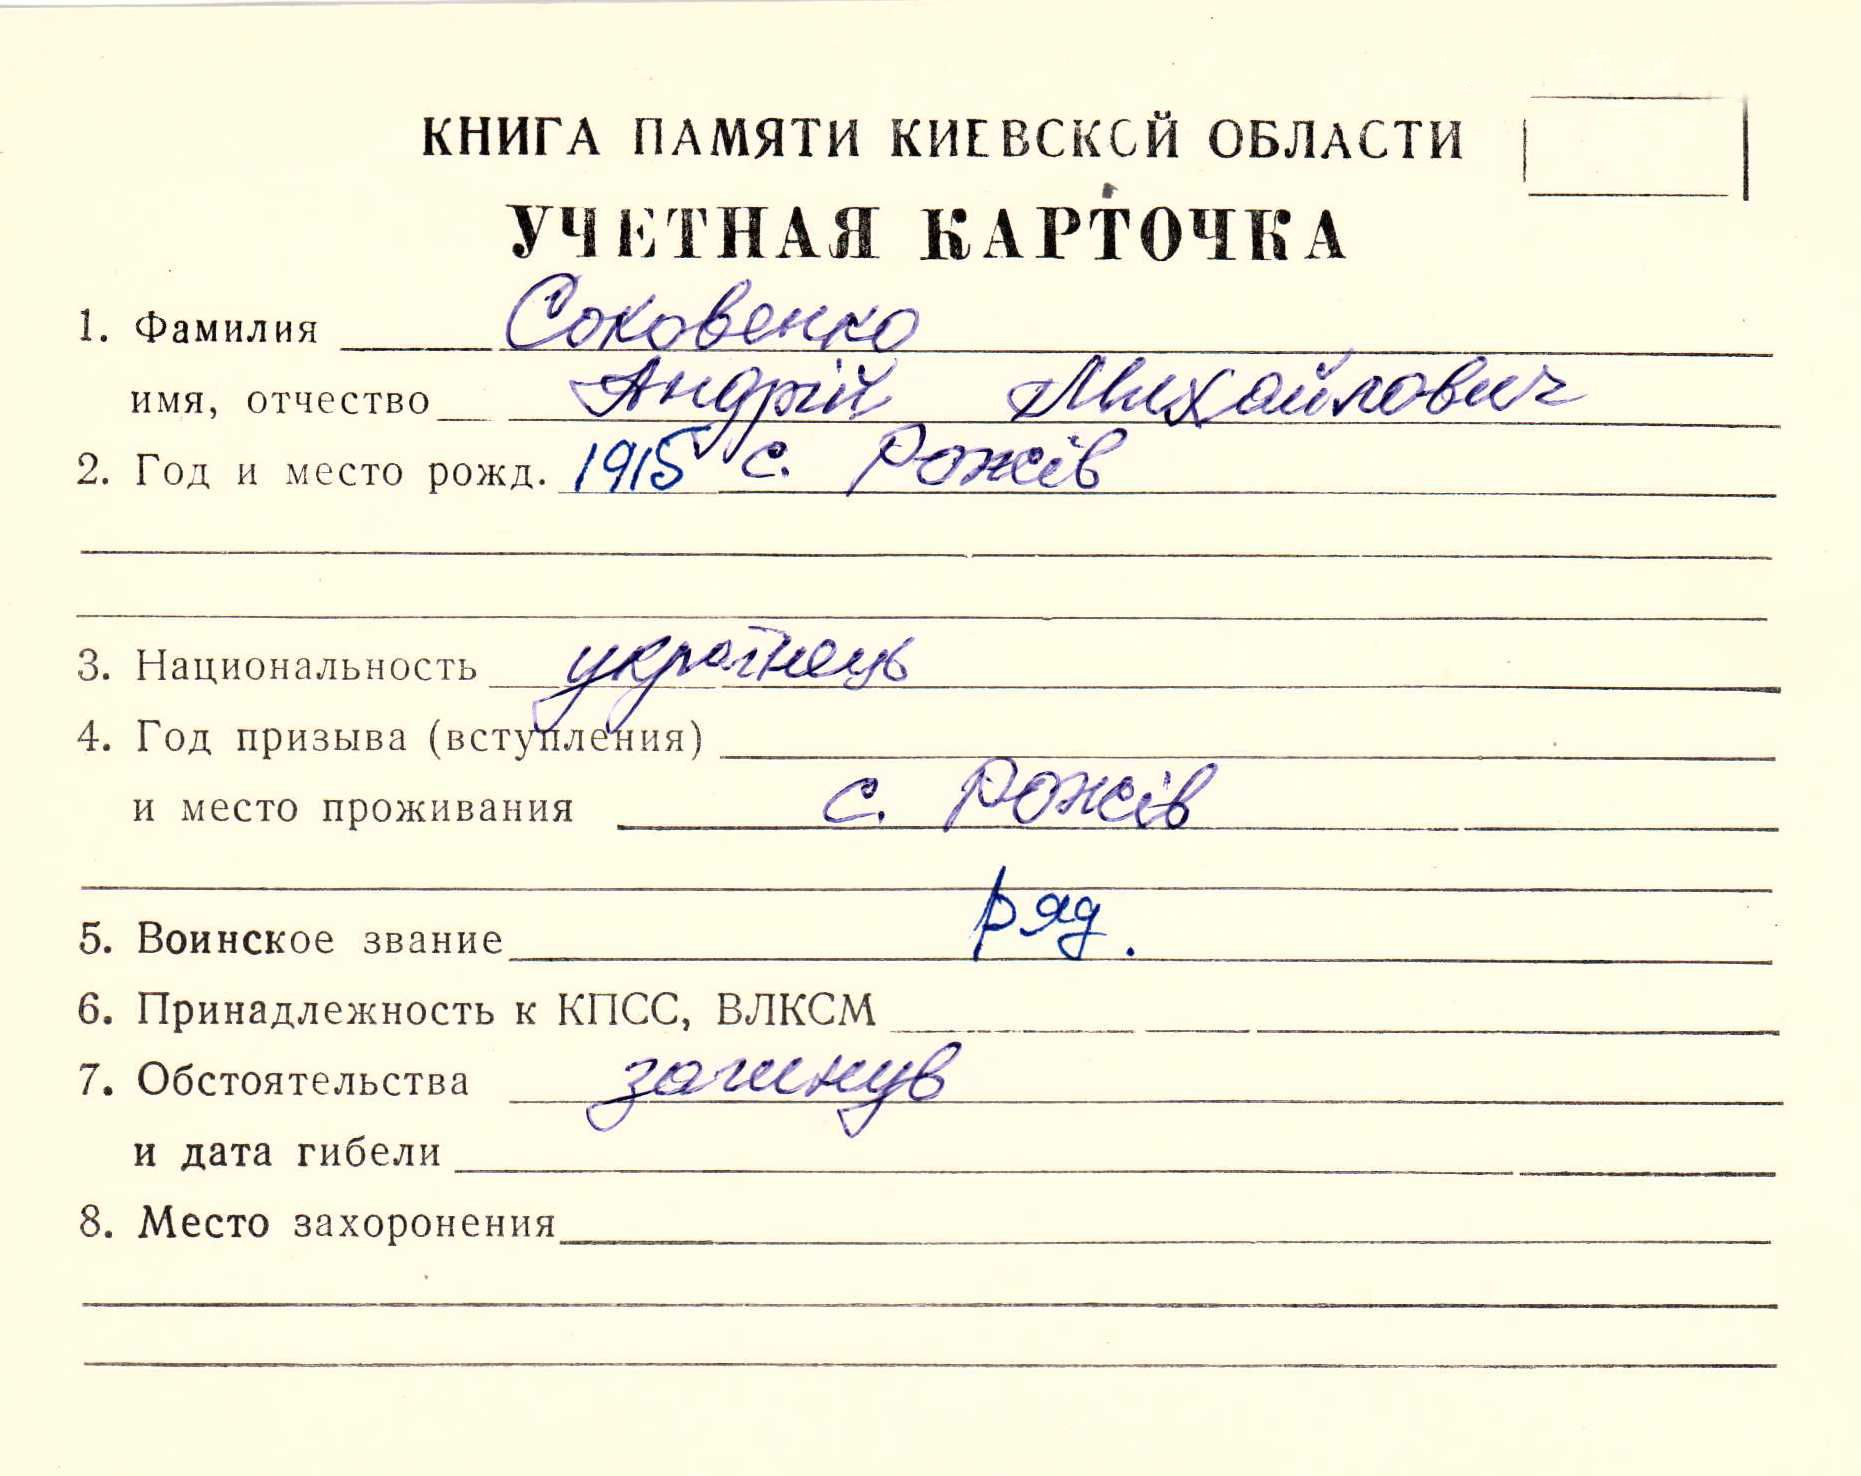 КНИГА ПАМЯТИ КИЕВСКОЙ ОБЛАСТИ
УЧЕТНАЯ КАРТОЧКА
1. Фамилия Соковенко
имя, отчество Андрій Михайлович
2. Год и место рожд. 1915 с. Рожів
3. Национальность українець
4. Год призыва (вступления)
и место проживания с. Рожів
5. Воинское звание ряд.
6. Принадлежность к КПСС, ВЛКСМ
7. Обстоятельства загинув
и дата гибели
8. Место захоронения